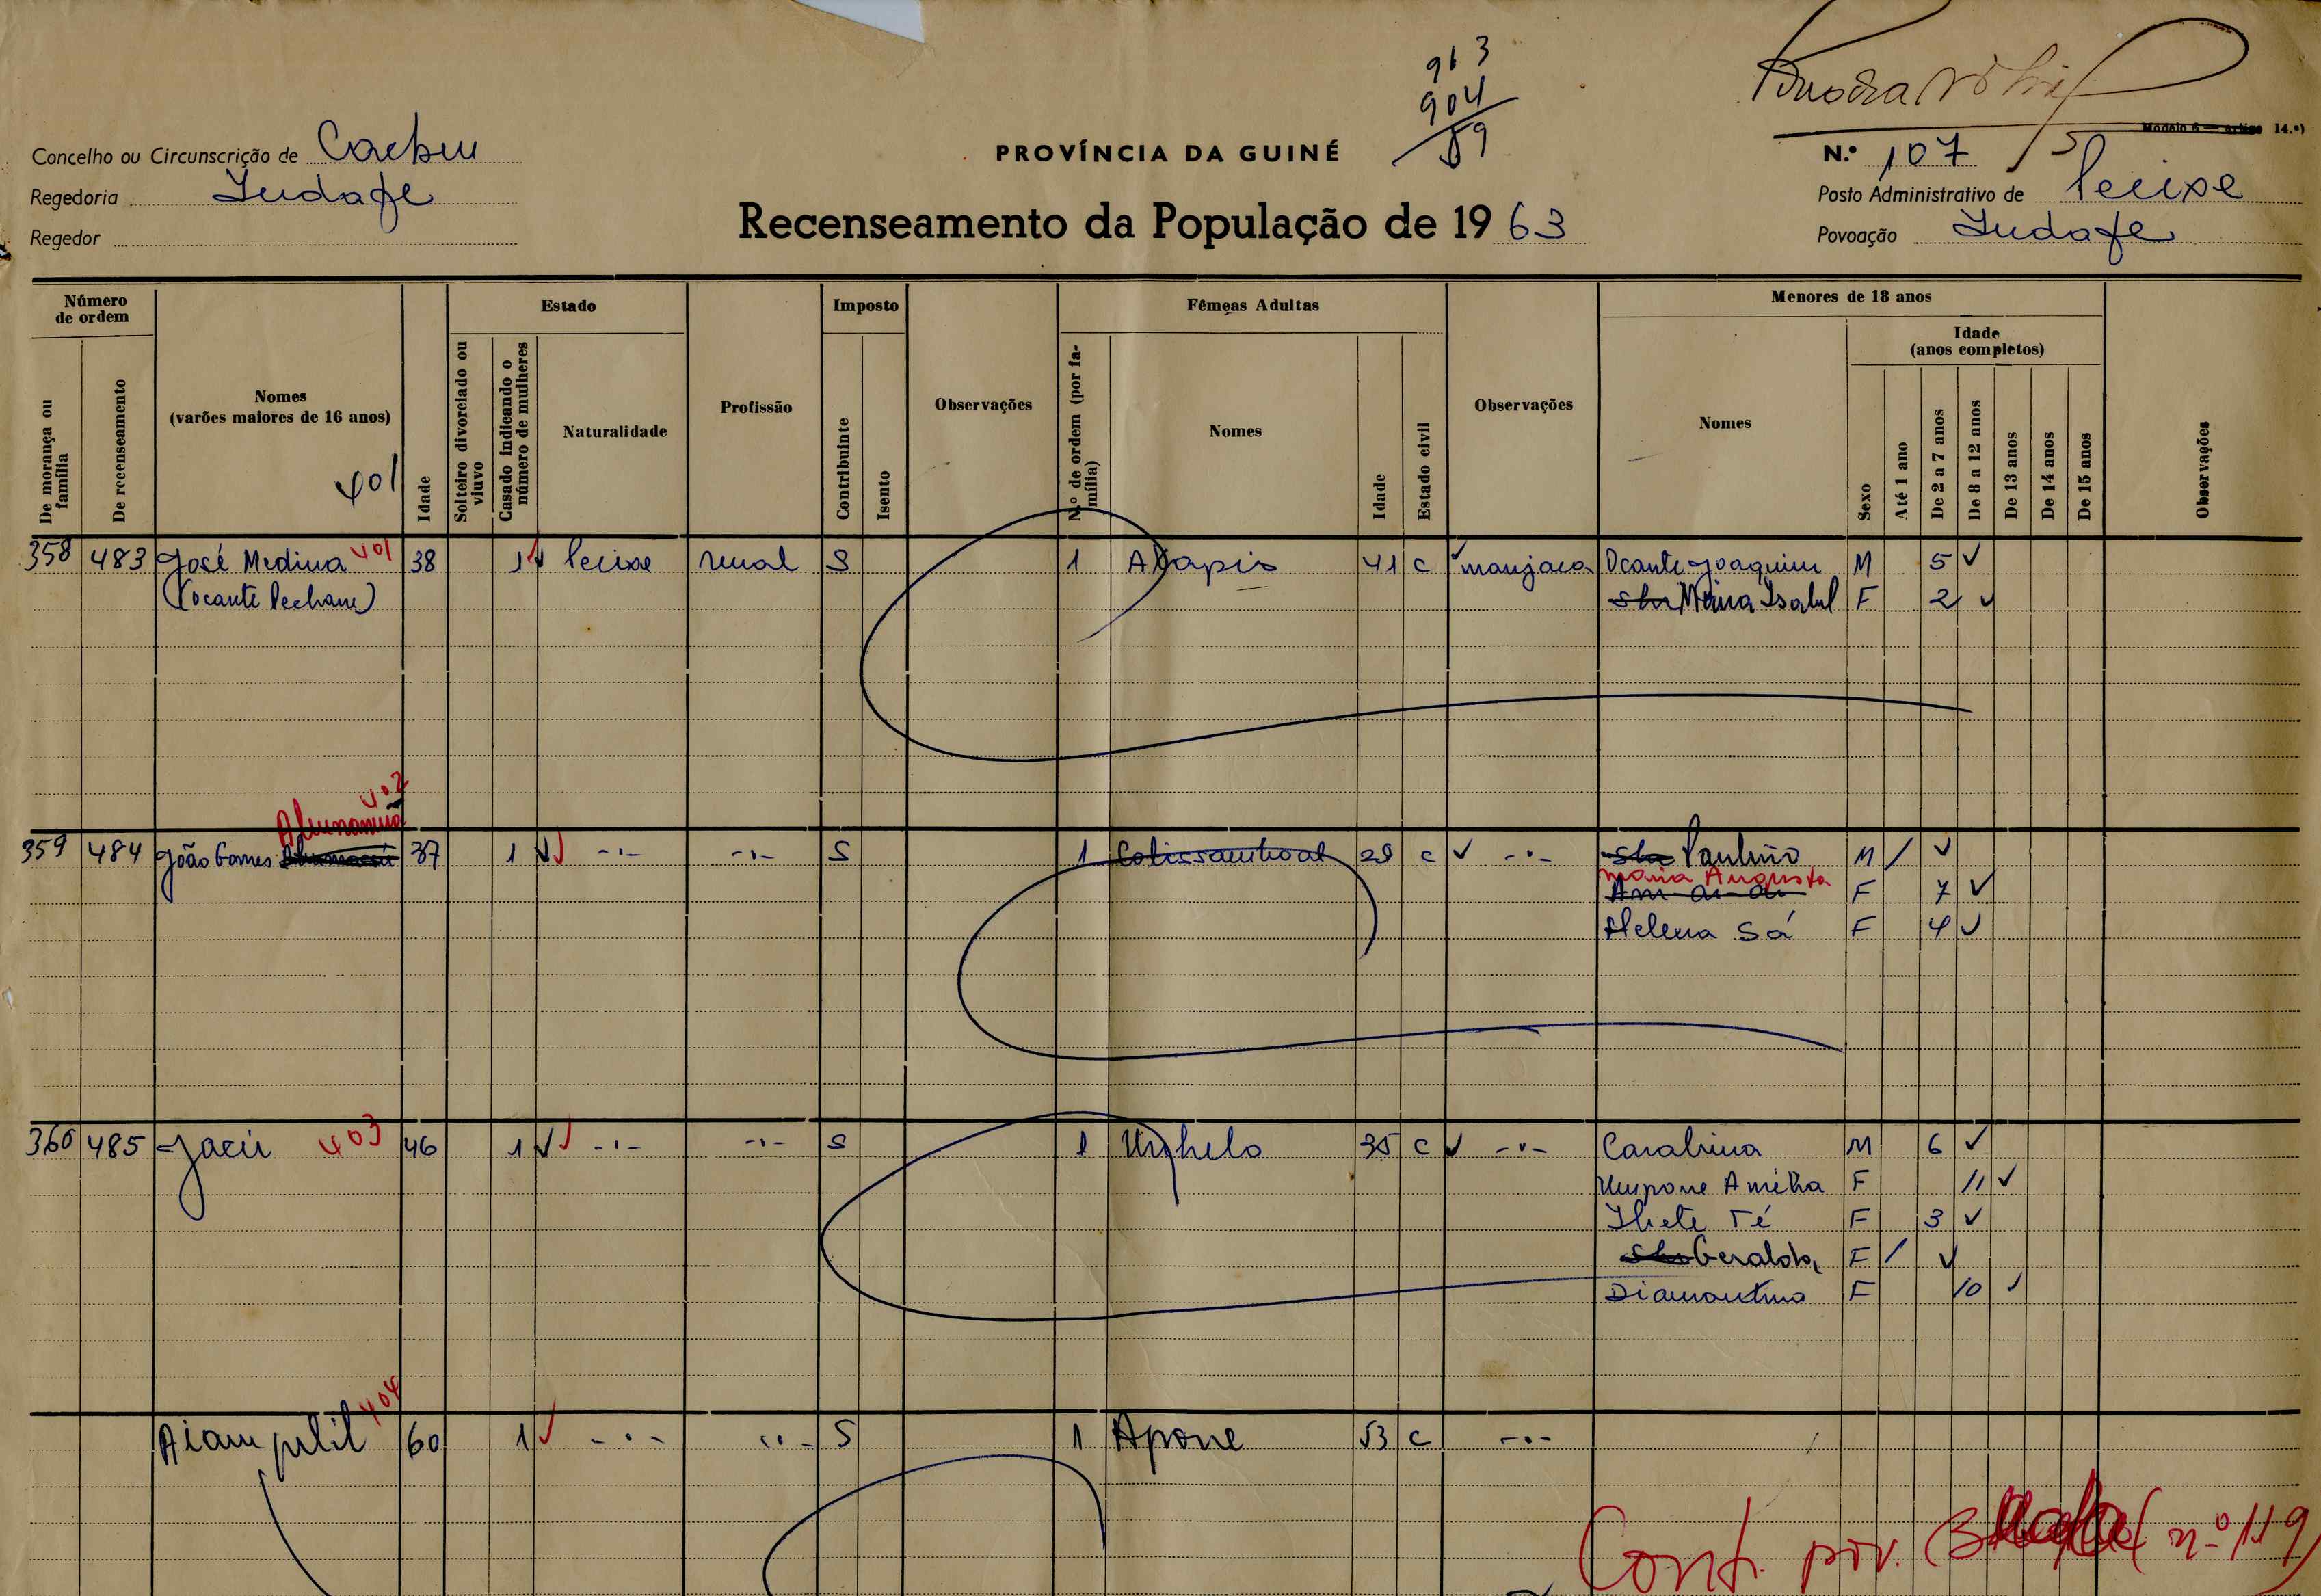 963
904
59
Modelo 6 — Artigo 14.º)
Concelho ou Circunscrição de Cacheu
PROVÍNCIA DA GUINÉ
N.º 107
Regedoria Indafe
Posto Administrativo de Pecixe
Regedor
Recenseamento da População de 1963
Povoação Indafe
Número de ordem
Estado
Imposto
Fêmeas Adultas
Menores de 18 anos
Idade (anos completos)
De morança ou família
De recenseamento
Nomes (varões maiores de 16 anos)
401
Idade
Solteiro divorciado ou viuvo
Casado indicando o número de mulheres
Naturalidade
Profissão
Contribuinte
Isento
Observações
N.º de ordem (por família)
Nomes
Idade
Estado civil
Observações
Nomes
Sexo
Até 1 ano
De 2 a 7 anos
De 8 a 12 anos
De 13 anos
De 14 anos
De 15 anos
Observações
358 483 José Medina 401 38 1 Pecixe rural S 1 Atapis 41 C manjaca Ocante Joaquim M 5
(Ocante Pechane) Maria Isabel F 2
402
359 484 João Gomes 37 1 -·- -·- S 1 28 C -·- Paulino M /
Maria Augusta F 7
Helena Sá F 4
360 485 Jacú 403 46 1 -·- -·- S 1 Unhelo 35 C -·- Carabina M 6
Umpone Amélia F 11
Ihete Té F 3
Geralda F /
Diamantina F 10
404
Aiam pelil 60 1 -·- -·- S 1 Apone 53 C -·-
Cont. pov. (nº 119)